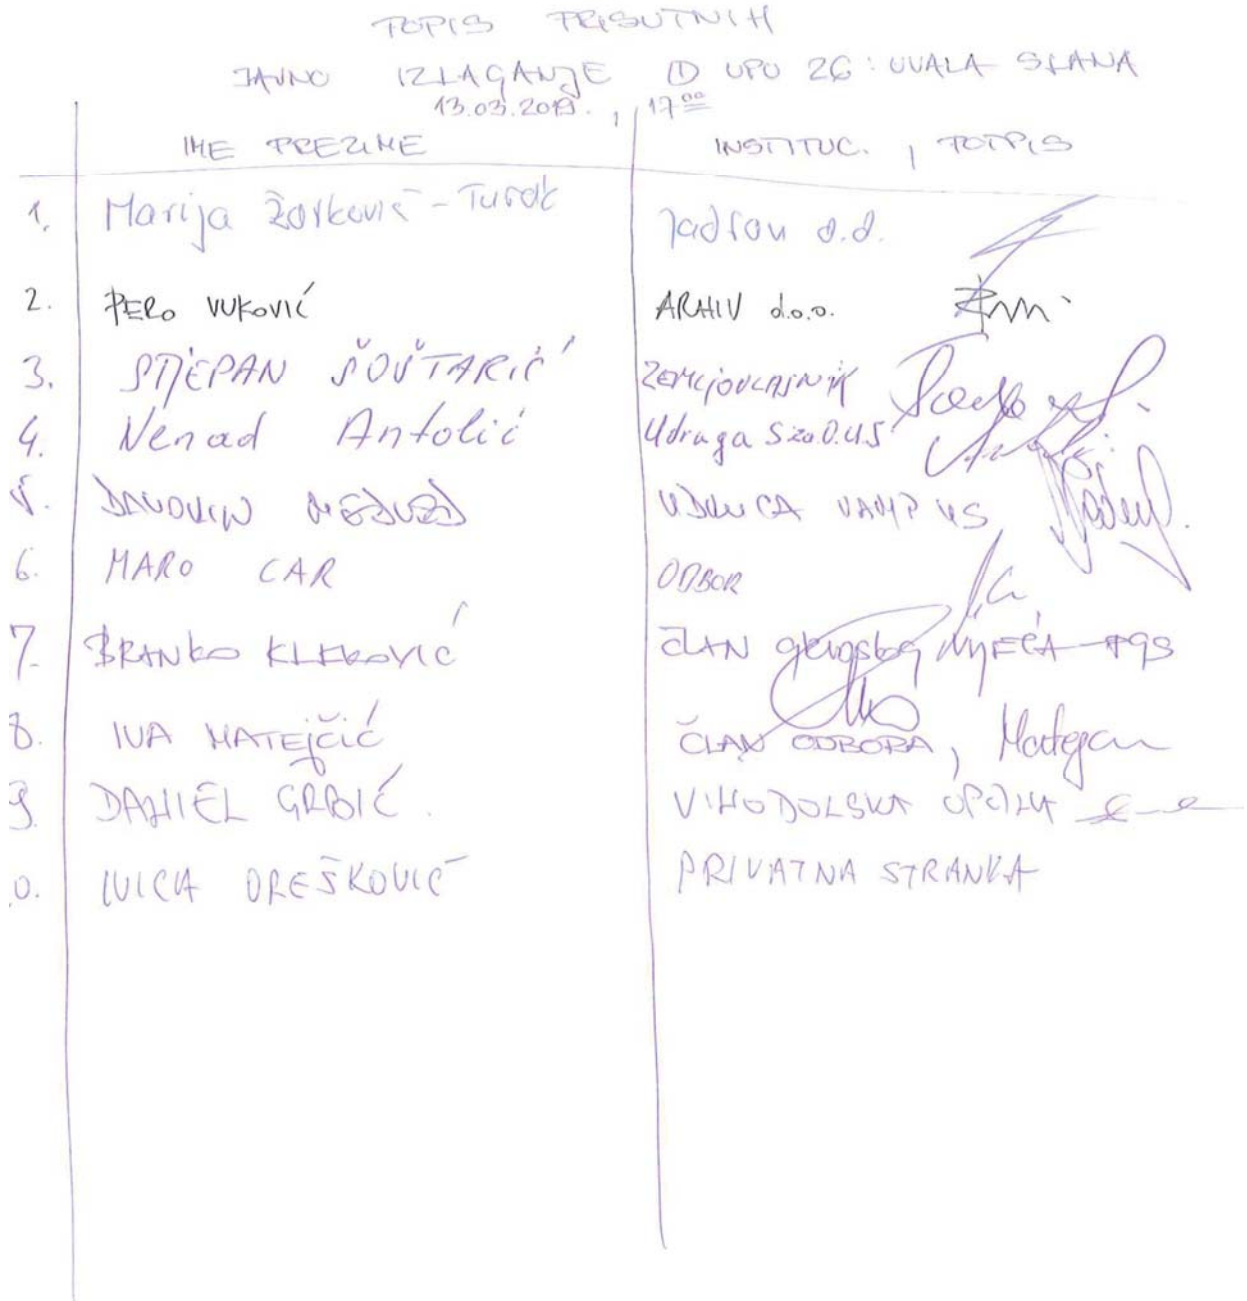 POPIS PRISUTNIH
JAVNO IZLAGANJE ① UPU 26: UVALA SLANA
13.03.2019., 17ºº
IME PREZIME INSTITUC. , POTPIS
1. Marija Žarković-Turak Jadran d.d.
2. PERO VUKOVIĆ ARHIV d.o.o.
3. STJEPAN ŠOŠTARIĆ ZEMLJOVLASNIK
4. Nenad Antolić Udruga SzaO.U.S
5.
6. MARO CAR ODBOR
7. BRANKO KLEKOVIĆ ČLAN VIJEĆA
8. IVA MATEJČIĆ ČLAN ODBORA,
9. DANIEL GRBIĆ. VINODOLSKA OPĆINA
0. IVICA OREŠKOVIĆ PRIVATNA STRANKA